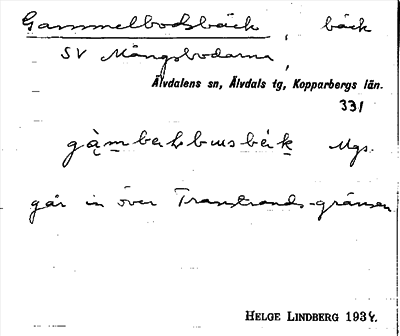 Gammelbodsbäck, bäck
SV Mångsbodarna,
Älvdalens sn, Älvdals tg, Kopparbergs län.
331
Mgs.
går in över Transtrands-gränsen
HELGE LINDBERG 1934.